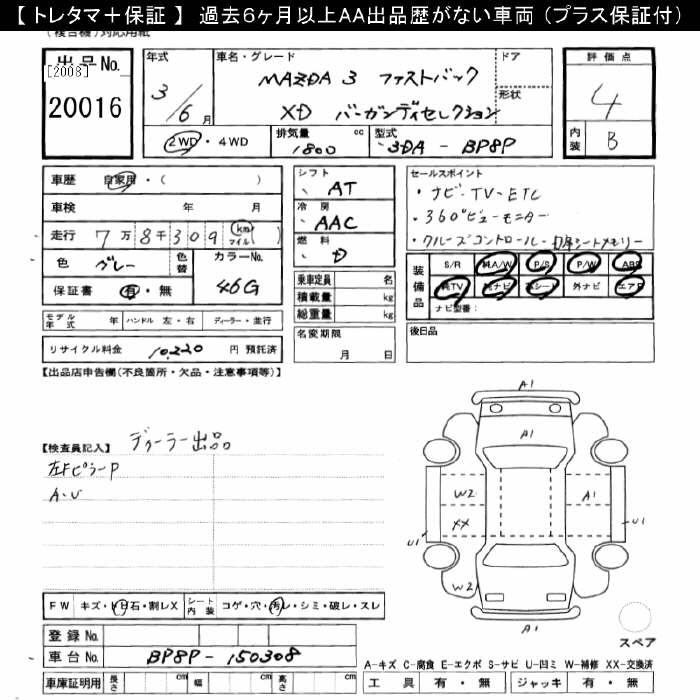 【トレタマ＋保証】 過去6ヶ月以上AA出品歴がない車両（プラス保証付）
(複合機)対応用紙
出品No.
[2008]
20016
年式
3/6月
車名・グレード
MAZDA 3 ファストバック
XD バーガンディセレクション
ドア
形状
評価点
4
内装
B
2WD・4WD
排気量
1800 cc
型式
3DA - BP8P
車歴 自家用・( )
車検 年 月
走行 7万8千309 (km マイル) ( )
色 グレー 色替 カラーNo. 46G
保証書 有・無
シフト AT
冷房 AAC
燃料 D
乗車定員 名
積載量 kg
総重量 kg
セールスポイント
・ナビ・TV・ETC
・360°ビューモニター
・クルーズコントロール・D席シートメモリー
装備品
S/R 純A/W P/S P/W ABS
純TV 純ナビ 革シート 外ナビ エアB
ナビ型番:
モデル年式 年 ハンドル 左・右 ディーラー・並行
名変期限 月 日
後日品
リサイクル料金 10,220 円 預託済
【出品店申告欄(不良箇所・欠品・注意事項等)】
【検査員記入】 ディーラー出品
左FピラーP
A・U
A1
A1
W2
A1
U1
XX
U1
W2
A1
FW キズ・トビ石・割レX シート内装 コゲ・穴・汚レ・シミ・破レ・スレ
スペア
登録No.
車台No. BP8P-150308
A-キズ C-腐食 E-エクボ S-サビ U-凹ミ W-補修 XX-交換済
車庫証明用 長さ cm 幅 cm 高さ cm
工具 有・無 ジャッキ 有・無